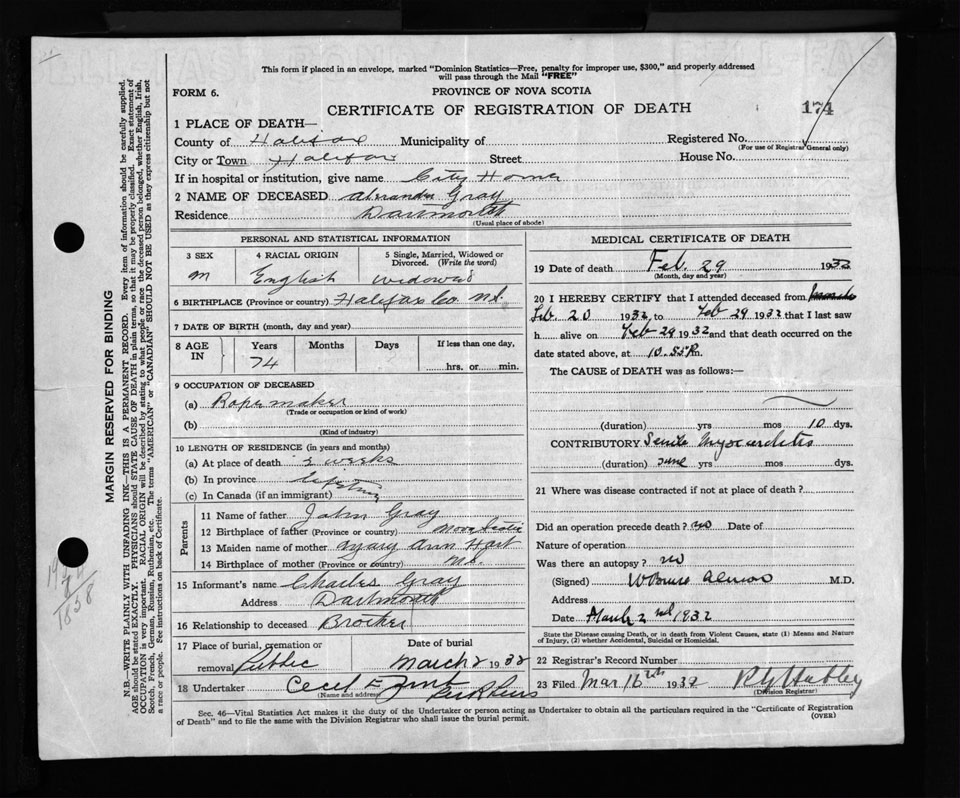 This form if placed in an envelope, marked "Dominion Statistics—Free, penalty for improper use, $300," and properly addressed
will pass through the Mail "FREE"
FORM 6.
PROVINCE OF NOVA SCOTIA
CERTIFICATE OF REGISTRATION OF DEATH
174
1 PLACE OF DEATH—
County of Halifax Municipality of Registered No.
(For use of Registrar General only)
City or Town Halifax Street House No.
If in hospital or institution, give name City Home
2 NAME OF DECEASED Alexander Gray
Residence Dartmouth
(Usual place of abode)
PERSONAL AND STATISTICAL INFORMATION
3 SEX 4 RACIAL ORIGIN 5 Single, Married, Widowed or
Divorced. (Write the word)
M English widowed
6 BIRTHPLACE (Province or country) Halifax Co. N.S.
7 DATE OF BIRTH (month, day and year)
8 AGE IN Years Months Days If less than one day,
74 hrs. or min.
9 OCCUPATION OF DECEASED
(a) Rope maker
(Trade or occupation or kind of work)
(b)
(Kind of industry)
10 LENGTH OF RESIDENCE (in years and months)
(a) At place of death weeks
(b) In province lifetime
(c) In Canada (if an immigrant)
Parents
11 Name of father John Gray
12 Birthplace of father (Province or country) Nova Scotia
13 Maiden name of mother Mary Ann Hart
14 Birthplace of mother (Province or country) N.S.
15 Informant's name Charles Gray
Address Dartmouth
16 Relationship to deceased Brother
17 Place of burial, cremation or Date of burial
removal Public March 2 1932
18 Undertaker Cecil E. Zink
(Name and address)
MEDICAL CERTIFICATE OF DEATH
19 Date of death Feb. 29 1932
(Month, day and year)
20 I HEREBY CERTIFY that I attended deceased from
Feb. 20 1932, to Feb 29 1932 that I last saw
h alive on Feb 29 1932 and that death occurred on the
date stated above, at 10.55 P.m.
The CAUSE of DEATH was as follows:—
(duration) yrs mos 10 dys.
CONTRIBUTORY Senile Myocarditis
(duration) yrs mos dys.
21 Where was disease contracted if not at place of death?
Did an operation precede death? no Date of
Nature of operation
Was there an autopsy? no
(Signed) W Bruce Almon M.D.
Address
Date March 2nd 1932
State the Disease causing Death, or in death from Violent Causes, state (1) Means and Nature
of Injury, (2) whether Accidental, Suicidal or Homicidal.
22 Registrar's Record Number
23 Filed Mar 16th 1932
(Division Registrar)
Sec. 46—Vital Statistics Act makes it the duty of the Undertaker or person acting as Undertaker to obtain all the particulars required in the "Certificate of Registration
of Death" and to file the same with the Division Registrar who shall issue the burial permit.
(OVER)
MARGIN RESERVED FOR BINDING
N.B.—WRITE PLAINLY WITH UNFADING INK—THIS IS A PERMANENT RECORD. Every item of information should be carefully supplied.
AGE should be stated EXACTLY. PHYSICIANS should STATE CAUSE OF DEATH in plain terms, so that it may be properly classified. Exact statement of
OCCUPATION is very important. RACIAL ORIGIN will be described by stating to what people or race the deceased person belonged, whether English, Irish,
Scotch, French, German, Russian, Ruthenian, etc. The terms "AMERICAN" or "CANADIAN" SHOULD NOT BE USED as they express citizenship but not
a race or people. See instructions on back of Certificate.
74
1858